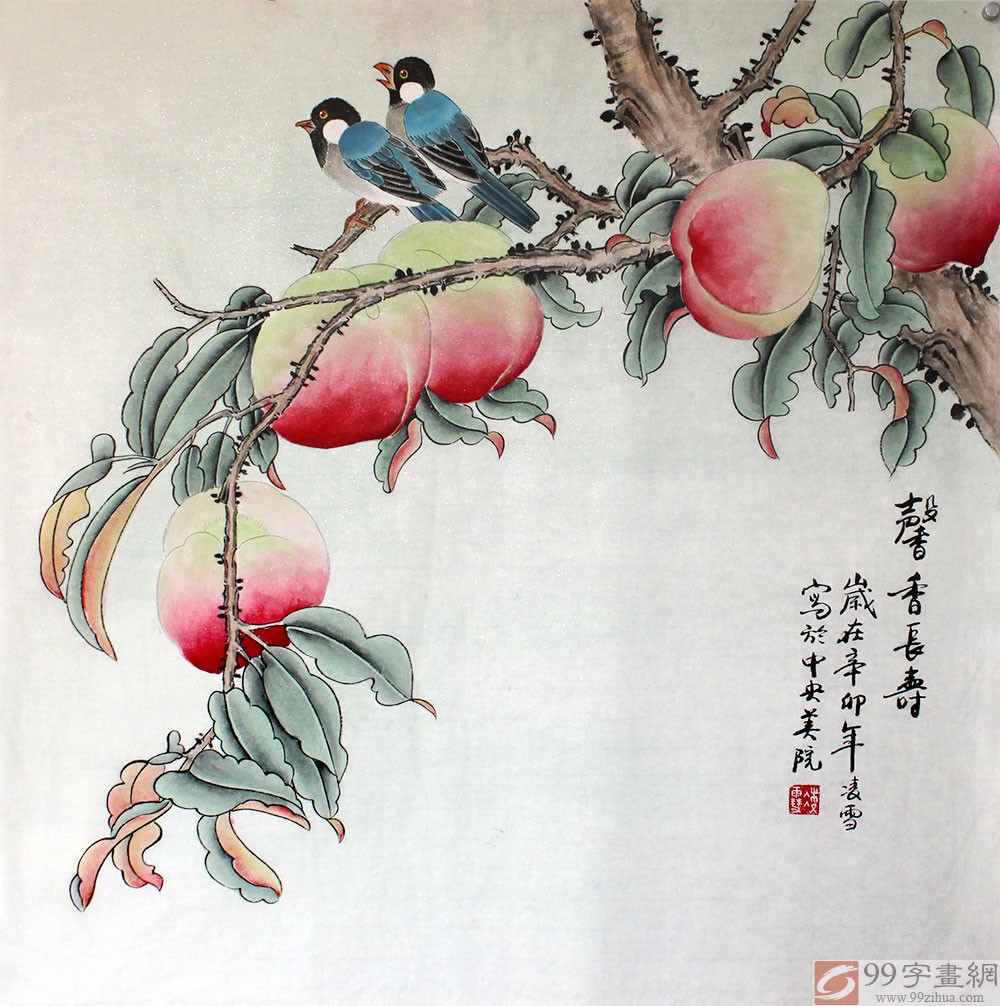 馨香長壽
歲在辛卯年凌雪
寫於中央美院
99字畫網
www.99zihua.com